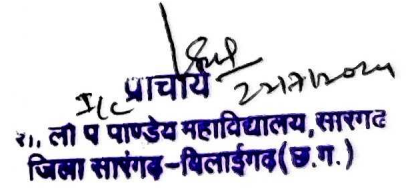 I/C प्राचार्य
रा. ला प पाण्डेय महाविद्यालय, सारगढ
जिला सारंगढ़-बिलाईगढ़(छ.ग.)